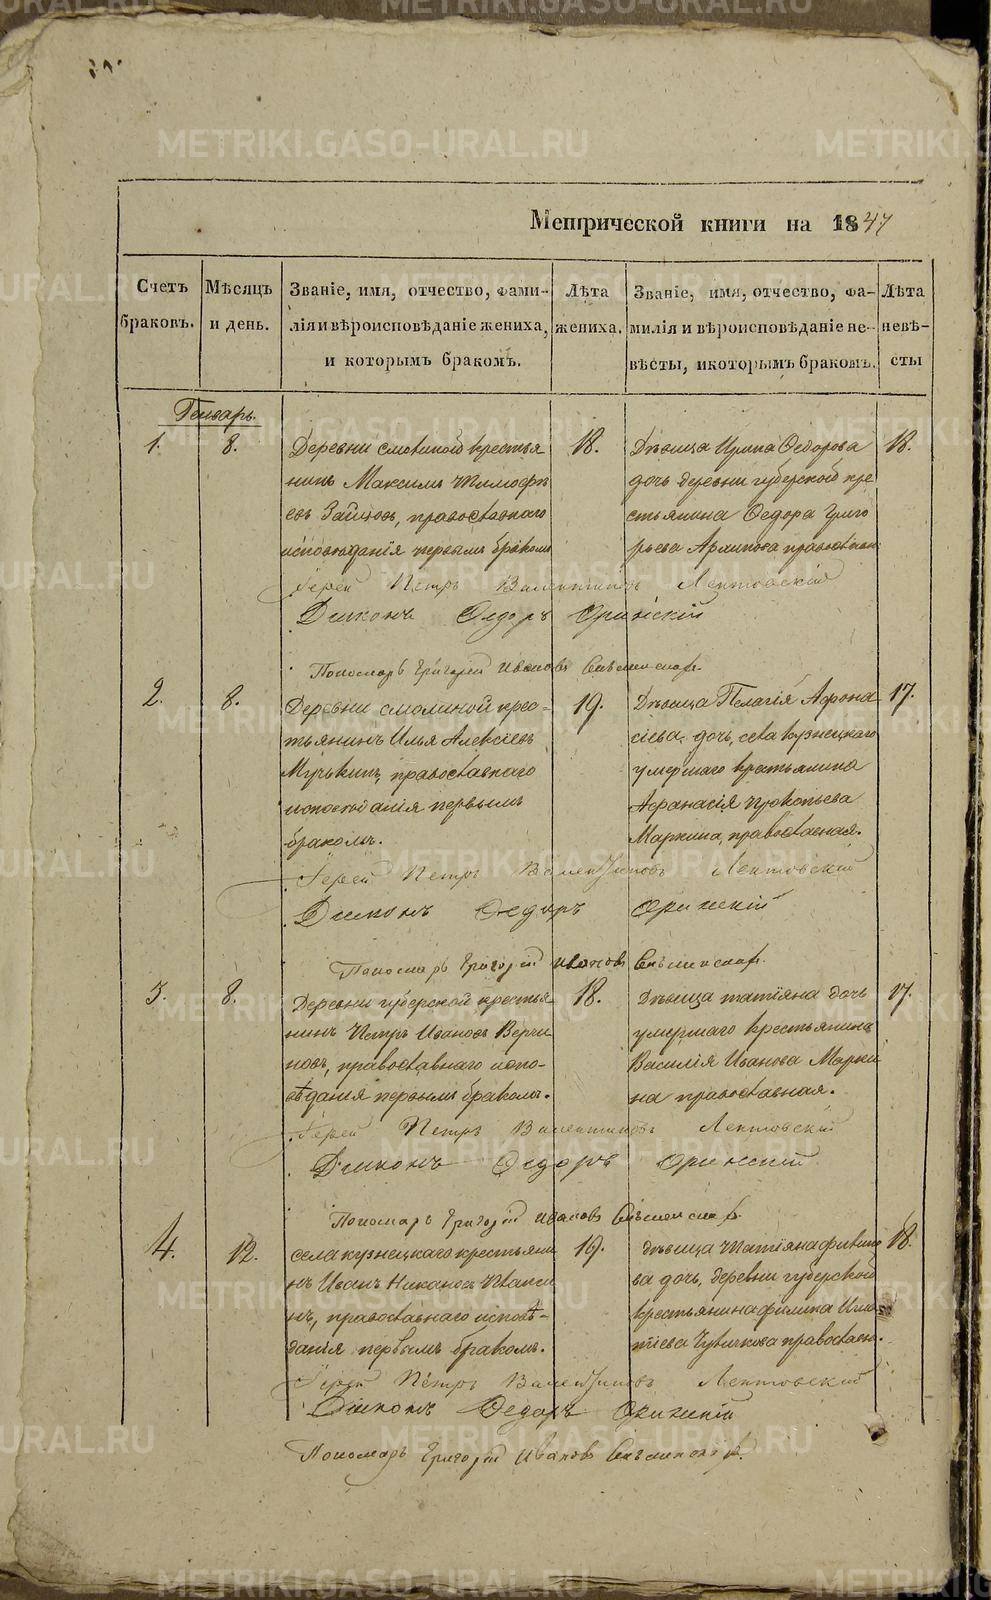 METRIKI.GASO-URAL.RU
Метрической книги на 1847
Счетъ браковъ.
Мѣсяцъ и день.
Званіе, имя, отчество, фами-
лія и вѣроисповѣданіе жениха,
и которымъ бракомъ.
Лѣта жениха.
Званіе, имя, отчество, фа-
милія и вѣроисповѣданіе не-
вѣсты, и которымъ бракомъ.
Лѣта невѣ-
сты
Генварь.
1. 8.
Деревни смолиной крестья
нинъ Максимъ Тимофѣ
евъ Зайцовъ, православнаго
исповѣданія первымъ бракомъ
18.
Дѣвица Ирина Федорова
дочь деревни губерской кре
стьянина Федора Григо
рьева Архипова православн
18.
Іерей Петръ Валентиновъ Лентовскій
Діаконъ Федоръ
Пономарь Григорій Ивановъ
2. 8.
Деревни смолиной крес-
тьянинъ Илья Алексіевъ
православнаго
исповѣданія первымъ
бракомъ.
19.
Дѣвица Пелагія Афона
сіева дочь, села кузнецкаго
умершаго крестьянина
Афанасія Прокопьева
Маркина, православная.
17.
Іерей Петръ Валентиновъ Лентовскій
Діаконъ Федоръ
Пономарь Григорій Ивановъ
3. 8.
Деревни губерской крестья
нинъ Петръ Ивановъ
православнаго испо-
вѣданія первымъ бракомъ.
18.
Дѣвица татіяна дочь
умершаго крестьянина
Василія Иванова Марки
на православная.
17.
Іерей Петръ Валентиновъ Лентовскій
Діаконъ Федоръ
Пономарь Григорій Ивановъ
4. 12.
села кузнецкаго крестьяни
нъ Иванъ
православнаго исповѣ-
данія первымъ бракомъ.
19.
дѣвица Татіяна филипо
ва дочь, деревни губерской
крестьянина филипа
православн.
18.
Іерей Петръ Валентиновъ Лентовскій
Діаконъ Федоръ
Пономарь Григорій Ивановъ